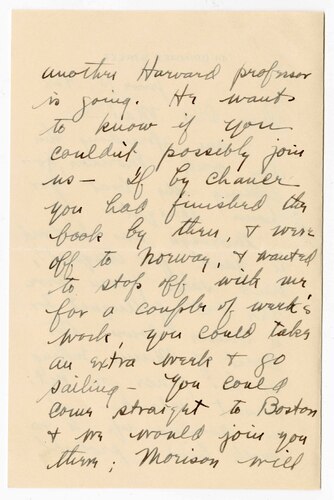 another Harvard professor
is going. He wants
to know if you
couldn't possibly join
us — If by chance
you had finished the
book by then, & were
off to Norway, & wanted
to stop off with me
for a couple of week's
work, you could take
an extra week & go
sailing — You could
come straight to Boston
& we would join you
there; Morison will